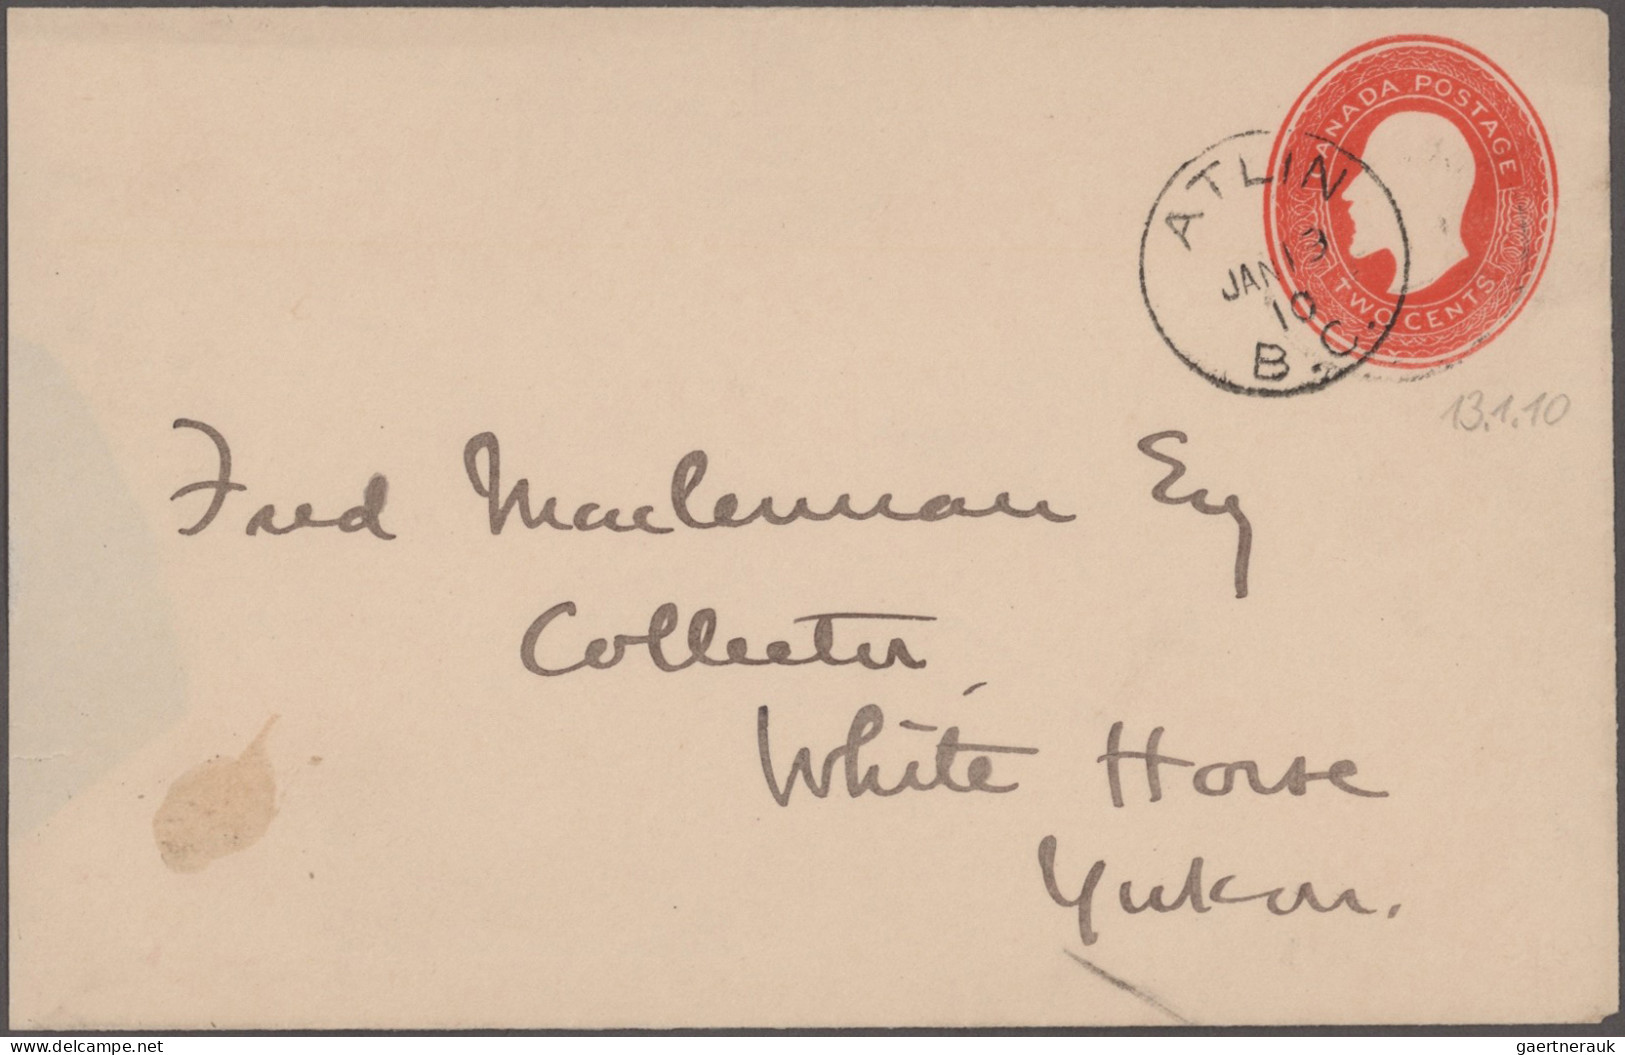 CANADA POSTAGE
TWO CENTS
ATLIN
JAN 13
10
B.C.
13.1.10
Fred Maclennan Esq
Collector,
White Horse
Yukon.
delcampe.net
gaertnerauk